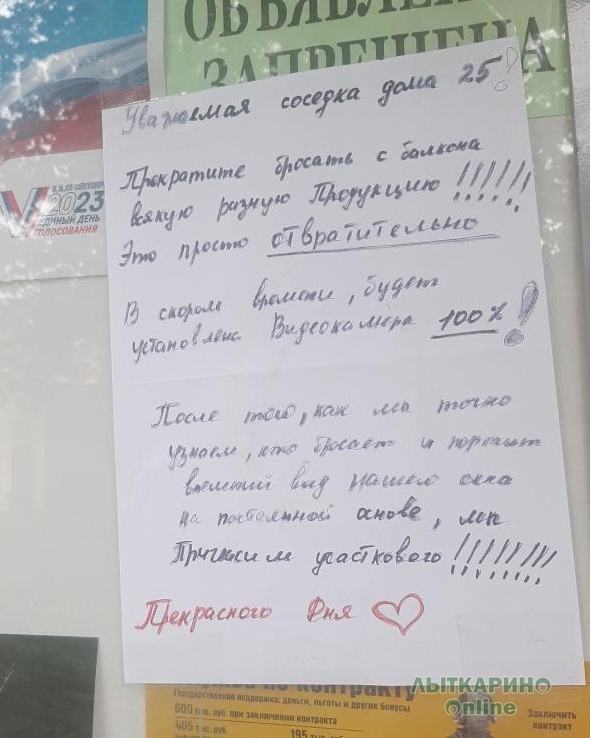 ОБЪЯВЛЕН
ЗАПРЕЩЕНА
2023
ЕДИНЫЙ ДЕНЬ
ГОЛОСОВАНИЯ
Уважаемая соседка дома 25!
Прекратите бросать с балкона
всякую разную Продукцию!!!!!!
Это просто отвратительно
В скором времени, будет
установлена Видеокамера 100%!
После того, как мы точно
узнаем, кто бросает и портит
внешний вид нашего окна
на постоянной основе, мы
Пригласим участкового!!!!!!!!
Прекрасного Дня ♡
по контракту
Государственная поддержка: деньги, льготы и другие бонусы
600 тыс. руб. при заключении контракта
405 тыс. руб.
195 тыс. руб.
Заключить
контракт
ЛЫТКАРИНО
Online